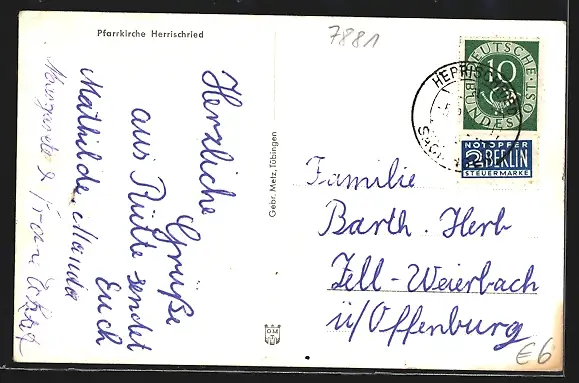 Pfarrkirche Herrischried
7881
Herzliche
Grüße
aus Rütte sendet
Euch
Mathilde, Manda
Gebr. Metz, Tübingen
DEUTSCHE
BUNDESPOST
10
NOTOPFER
2 BERLIN
STEUERMARKE
Familie
Barth. Herb
Zell-Weierbach
ü/Offenburg
€6